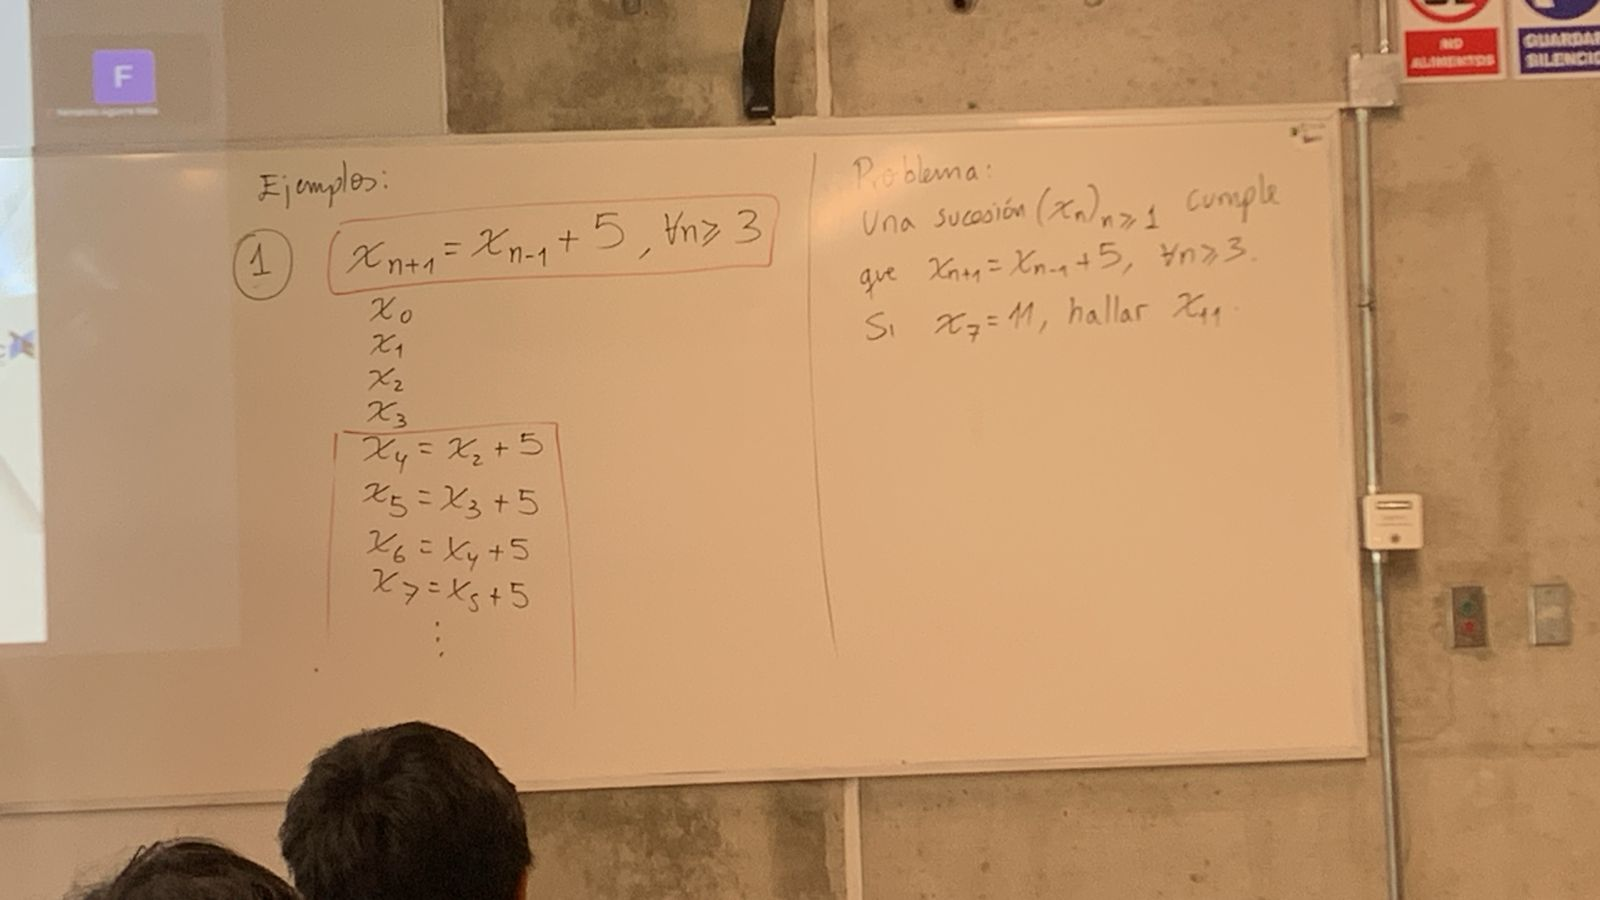 F
NO
ALIMENTOS
GUARDAR
SILENCIO
Ejemplos:
1
x_{n+1} = x_{n-1} + 5, ∀n ≥ 3
x_0
x_1
x_2
x_3
x_4 = x_2 + 5
x_5 = x_3 + 5
x_6 = x_4 + 5
x_7 = x_5 + 5
⋮
Problema:
Una sucesión (x_n)_{n≥1} cumple
que x_{n+1} = x_{n-1} + 5, ∀n ≥ 3.
Si x_7 = 11, hallar x_{11}.